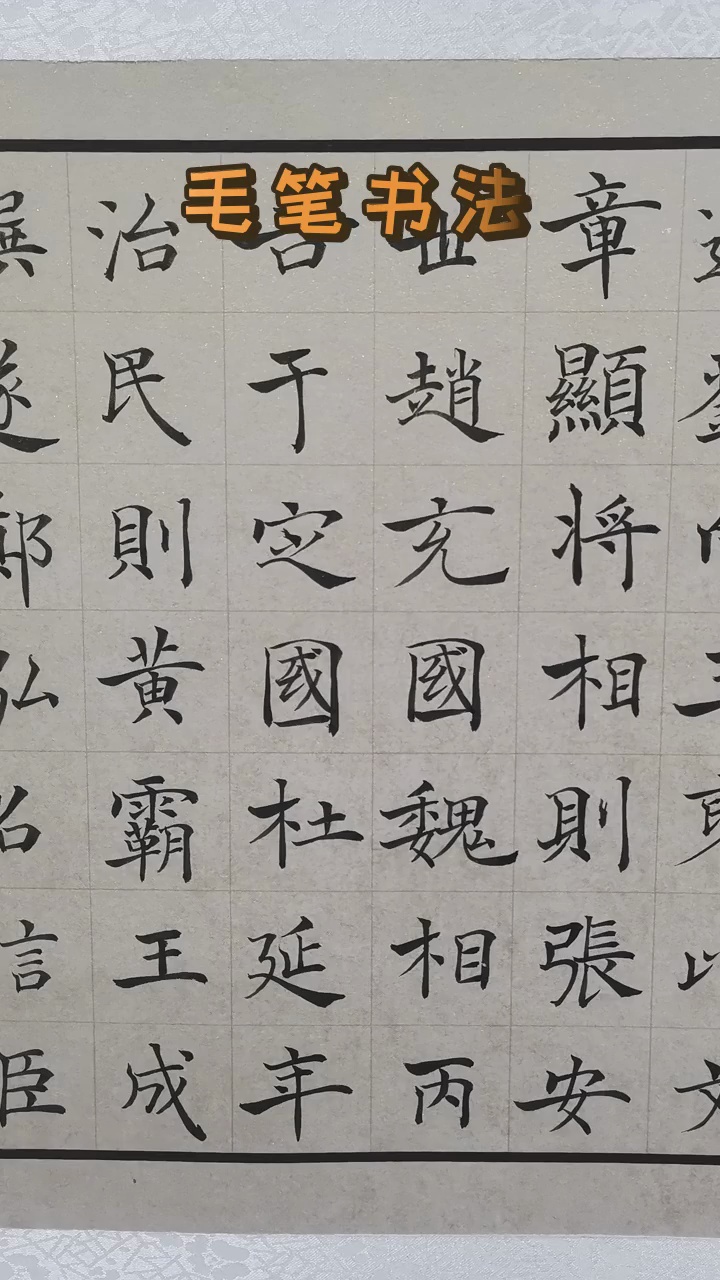 毛笔书法
以文
章顯将相則張安
世趙充國魏相丙
吉于定國杜延年
治民則黃霸王成
遂鄭弘召信臣